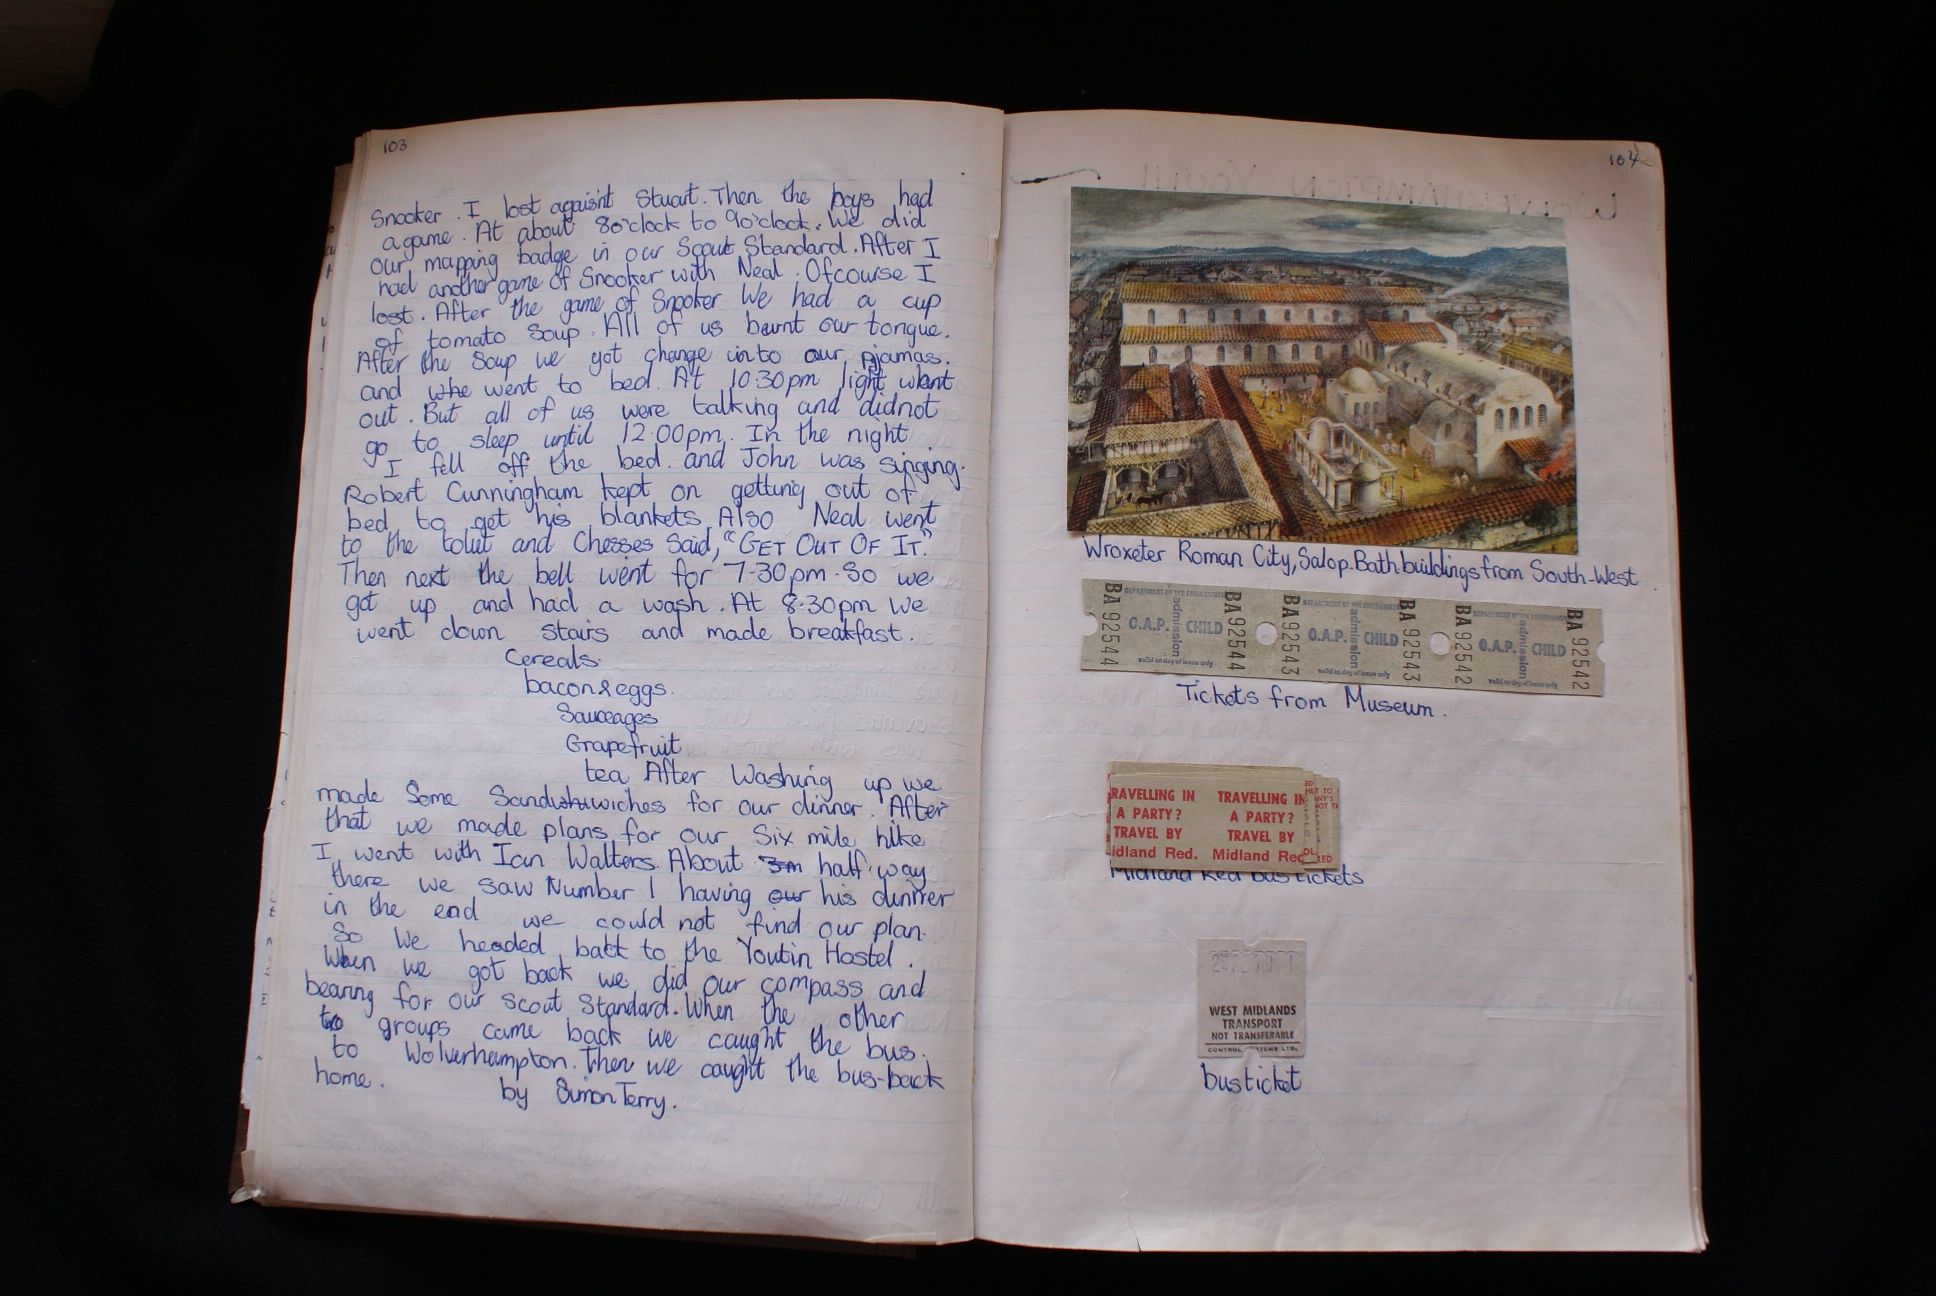 103
Snooker. I lost agaisn't Stuart. Then the boys had
a game. At about 8o'clock to 9o'clock. We did
our mapping badge in our Scout Standard. After I
had another game of Snooker with Neal. Ofcourse I
lost. After the game of Snooker We had a cup
of tomato Soup. All of us burnt our tongue.
After the Soup we got change into our pjamas.
and whe went to bed. At 10:30pm light want
out. But all of us were talking and didnot
go to sleep until 12.00pm. In the night
I fell off the bed. and John was singing.
Robert Cunningham kept on getting out of
bed to get his blankets. Also Neal went
to the toilet and Chesses Said, "GET OUT OF IT."
Then next the bell went for 7-30pm. So we
got up and had a wash. At 8.30pm we
went down stairs and made breakfast.
Cereals.
bacon & eggs.
Sauceages
Grapefruit
tea After Washing up we
made Some Sandwhiwiches for our dinner. After
that we made plans for our Six mile hike
I went with Ian Walters. About 3m half way
there we saw Number 1 having our his dinner
in the end we could not find our plan.
So We headed batt to the Youtin Hostel.
When we got back we did our compass and
bearing for our Scout Standard. When the other
to groups came back we caught the bus.
to Wolverhampton. Then we caught the bus-back
home.
by Simon Terry.
104
WOLVERHAMPTON YOUTH
Wroxeter Roman City, Salop. Bath buildings from South-West
BA 92544 DEPARTMENT OF THE ENVIRONMENT O.A.P. admission CHILD valid on day of issue only BA 92544
BA 92543 DEPARTMENT OF THE ENVIRONMENT O.A.P. admission CHILD valid on day of issue only BA 92543
BA 92542 DEPARTMENT OF THE ENVIRONMENT O.A.P. admission CHILD valid on day of issue only BA 92542
Tickets from Museum.
RAVELLING IN TRAVELLING IN
A PARTY? A PARTY?
TRAVEL BY TRAVEL BY
idland Red. Midland Red
Midland Red bus tickets
WEST MIDLANDS
TRANSPORT
NOT TRANSFERABLE
bus ticket